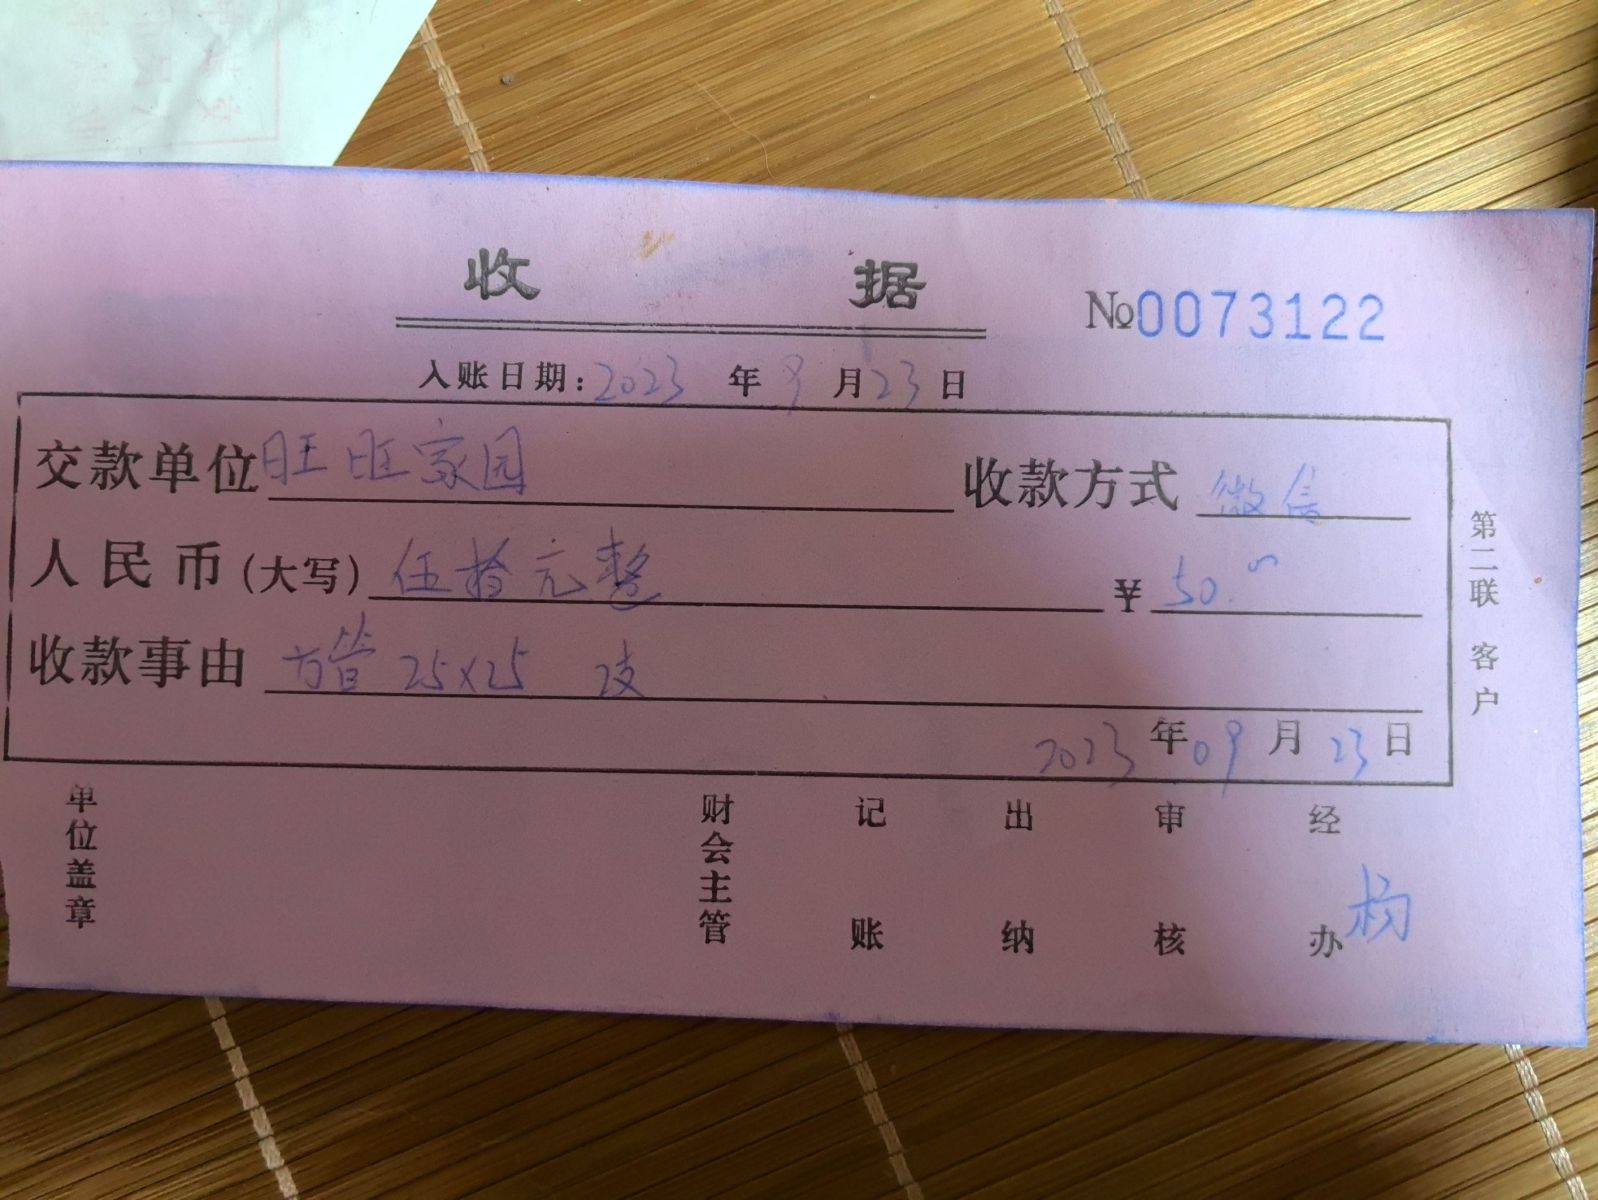 收据
№0073122
入账日期：2023年9月23日
交款单位 旺旺家园 收款方式 微信
人民币(大写) 伍拾元整 ¥ 50.00
收款事由 方管 25×25 2支
2023年09月23日
第二联 客户
单位盖章 财会主管 记账 出纳 审核 经办 杨